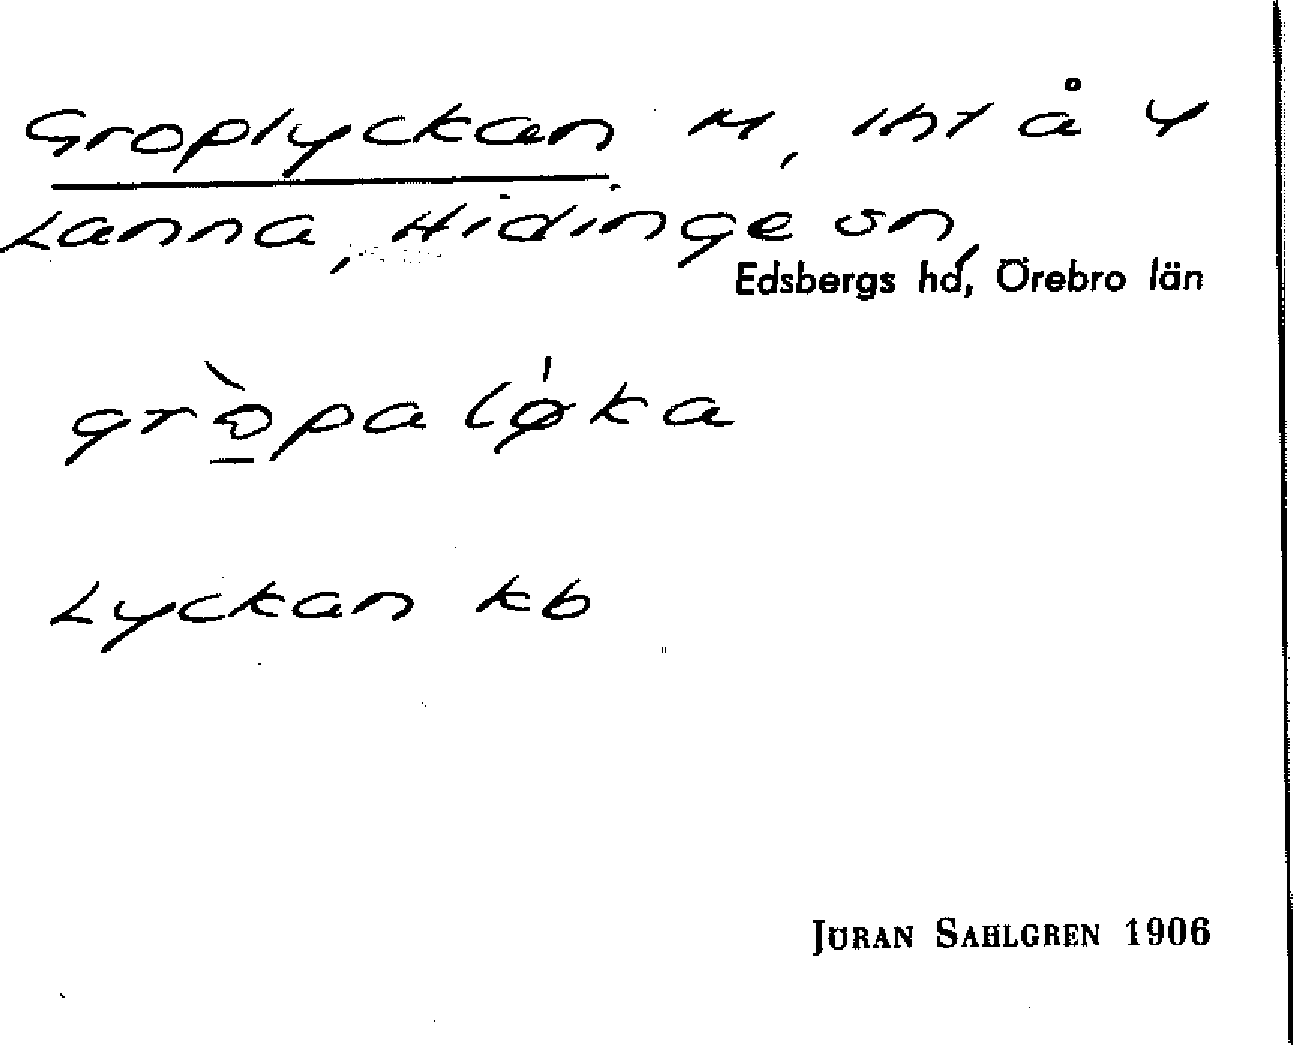 Groplyckan M, lht å Y
Lanna, Hidinge sn,
Edsbergs hd, Örebro län
grò̲pa lǿ̨ka
Lyckan kb
JÖRAN SAHLGREN 1906